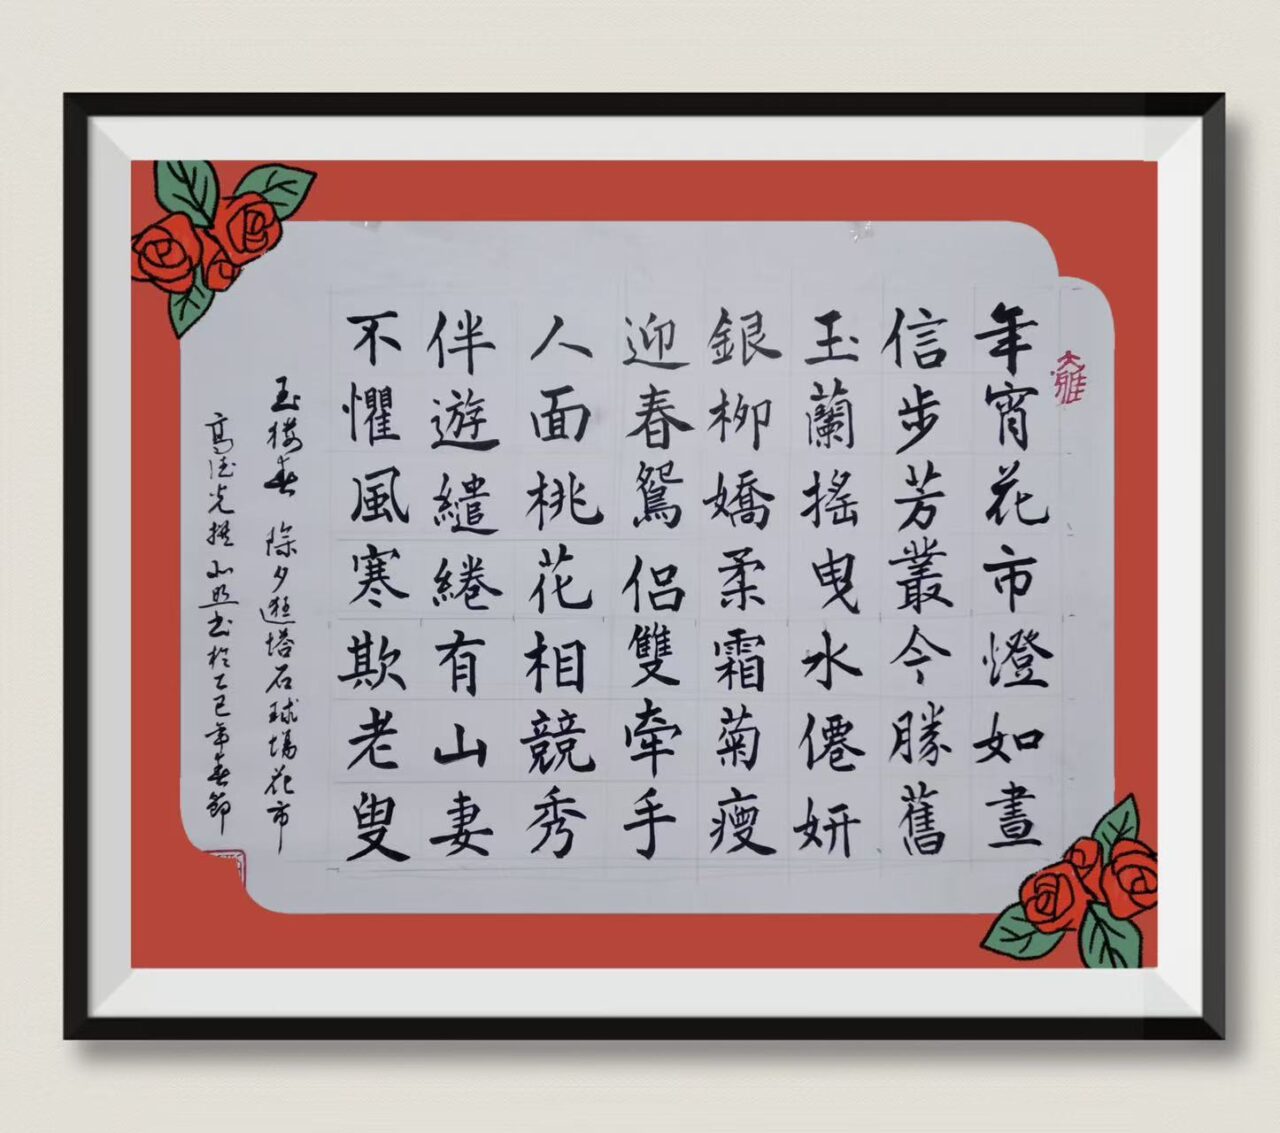 大雅
年宵花市燈如晝
信步芳叢今勝舊
玉蘭搖曳水僊妍
銀柳嬌柔霜菊瘦
迎春鴛侶雙牽手
人面桃花相競秀
伴遊繾綣有山妻
不懼風寒欺老叟
玉楼春 除夕逛塔石球場花市
高光撰书於乙巳年春節